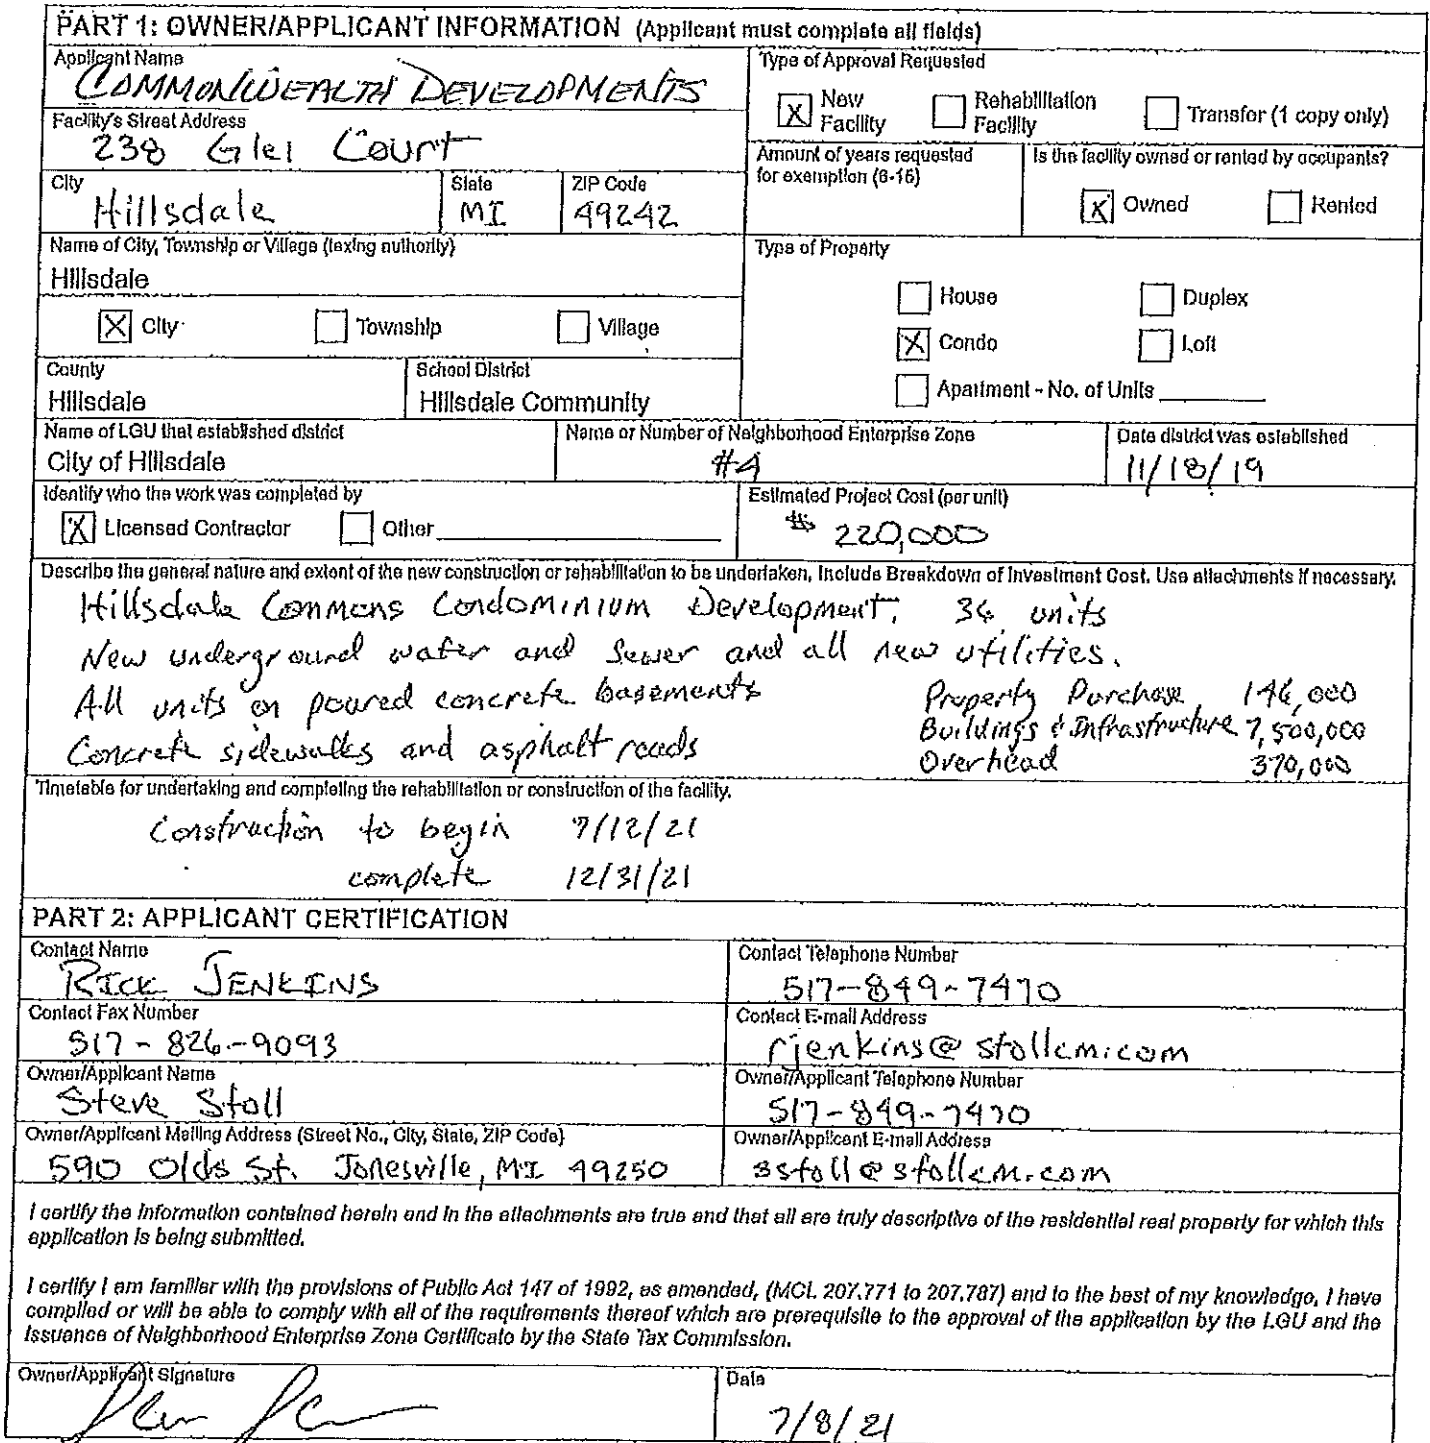 PART 1: OWNER/APPLICANT INFORMATION (Applicant must complete all fields)
Applicant Name
COMMONWEALTH DEVELOPMENTS
Type of Approval Requested
[X] New Facility [ ] Rehabilitation Facility [ ] Transfer (1 copy only)
Facility's Street Address
238 Glei Court
Amount of years requested for exemption (6-15)
Is the facility owned or rented by occupants?
[X] Owned [ ] Rented
City
Hillsdale
State
MI
ZIP Code
49242
Name of City, Township or Village (taxing authority)
Hillsdale
[X] City [ ] Township [ ] Village
Type of Property
[ ] House [ ] Duplex
[X] Condo [ ] Loft
[ ] Apartment - No. of Units
County
Hillsdale
School District
Hillsdale Community
Name of LGU that established district
City of Hillsdale
Name or Number of Neighborhood Enterprise Zone
#4
Date district was established
11/18/19
Identify who the work was completed by
[X] Licensed Contractor [ ] Other
Estimated Project Cost (per unit)
$ 220,000
Describe the general nature and extent of the new construction or rehabilitation to be undertaken, Include Breakdown of Investment Cost. Use attachments if necessary.
Hillsdale Commons Condominium Development, 36 units
New underground water and sewer and all new utilities.
All units on poured concrete basements
Concrete sidewalks and asphalt roads
Property Purchase 146,000
Buildings & Infrastructure 7,500,000
Overhead 370,000
Timetable for undertaking and completing the rehabilitation or construction of the facility.
Construction to begin 7/12/21
complete 12/31/21
PART 2: APPLICANT CERTIFICATION
Contact Name
RICK JENKINS
Contact Telephone Number
517-849-7470
Contact Fax Number
517-826-9093
Contact E-mail Address
rjenkins@stollcm.com
Owner/Applicant Name
Steve Stoll
Owner/Applicant Telephone Number
517-849-7470
Owner/Applicant Mailing Address (Street No., City, State, ZIP Code)
590 Olds St. Jonesville, MI 49250
Owner/Applicant E-mail Address
sstoll@stollcm.com
I certify the information contained herein and in the attachments are true and that all are truly descriptive of the residential real property for which this
application is being submitted.
I certify I am familiar with the provisions of Public Act 147 of 1992, as amended, (MCL 207.771 to 207.787) and to the best of my knowledge, I have
complied or will be able to comply with all of the requirements thereof which are prerequisite to the approval of the application by the LGU and the
issuance of Neighborhood Enterprise Zone Certificate by the State Tax Commission.
Owner/Applicant Signature
Date
7/8/21